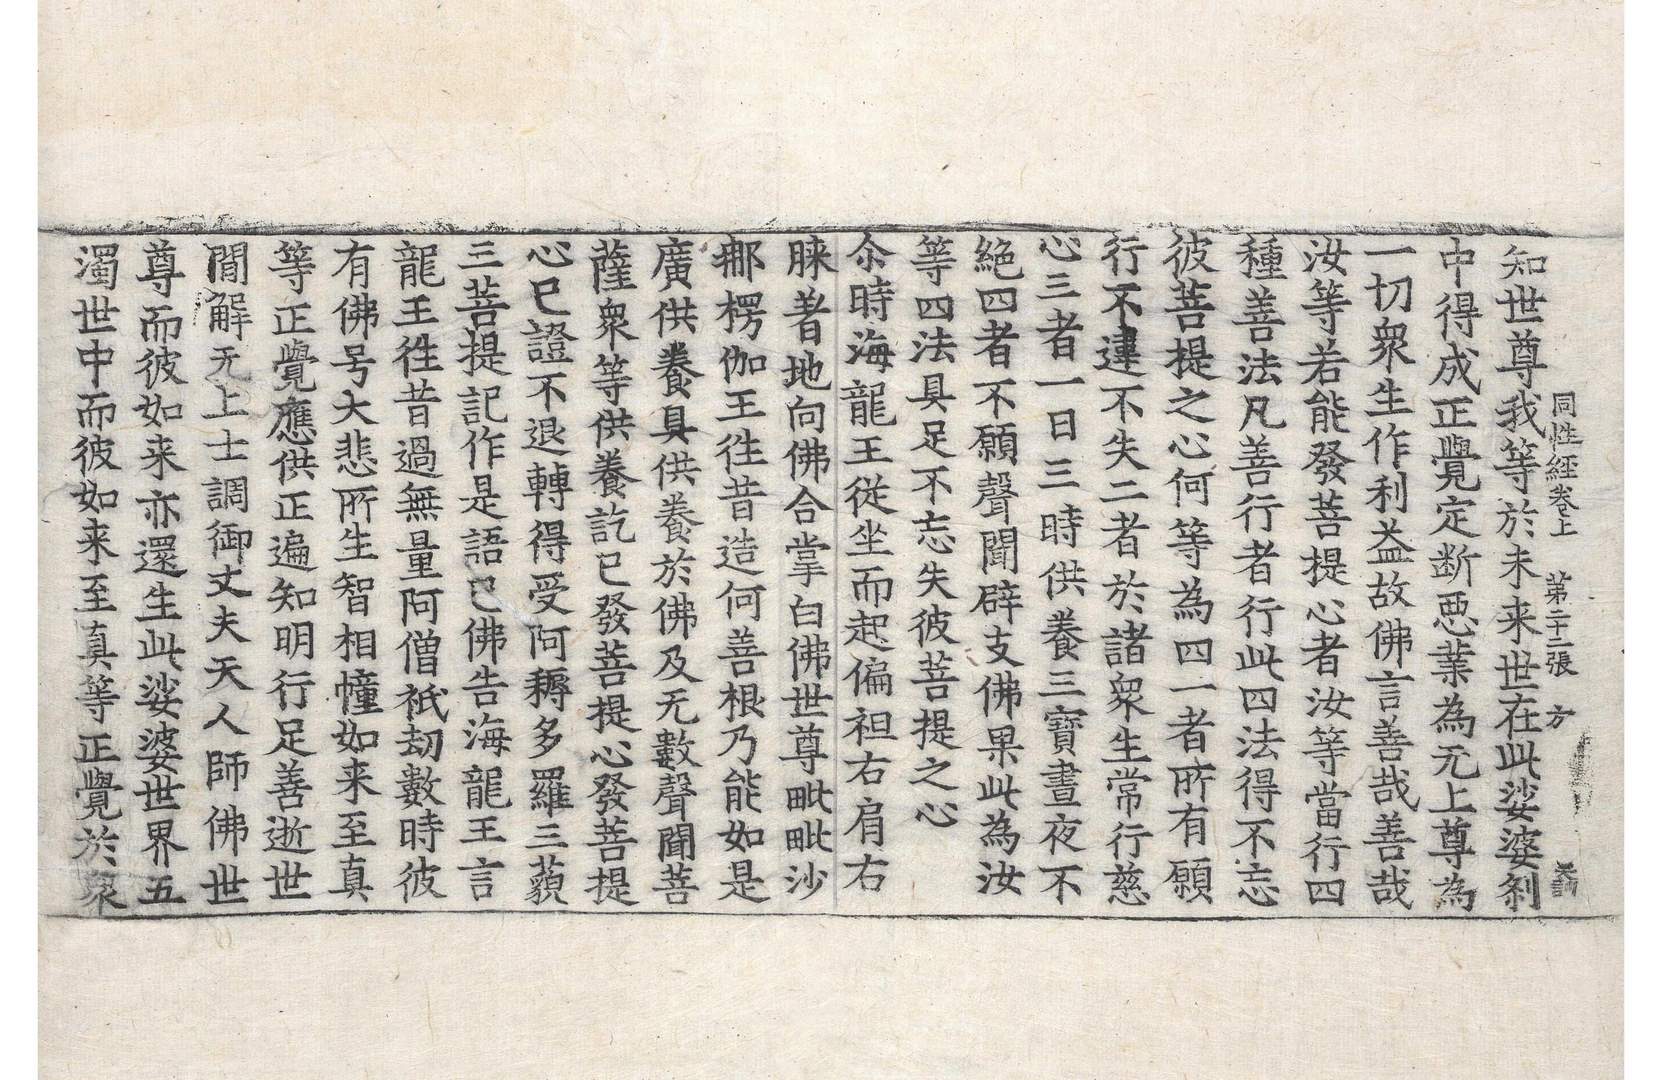 同性經卷上 第二十二張 方
知世尊我等於未来世在此娑婆剎
中得成正覺定断惡業為无上尊為
一切衆生作利益故佛言善哉善哉
汝等若能發菩提心者汝等當行四
種善法凡善行者行此四法得不忘
彼菩提之心何等為四一者所有願
行不違不失二者於諸衆生常行慈
心三者一日三時供養三寶晝夜不
絕四者不願聲聞辟支佛果此為汝
等四法具足不忘失彼菩提之心
尒時海龍王從坐而起偏袒右肩右
膝著地向佛合掌白佛世尊毗毗沙
郍楞伽王徃昔造何善根乃能如是
廣供養具供養於佛及无數聲聞菩
薩衆等供養訖已發菩提心發菩提
心已證不退轉得受阿耨多羅三藐
三菩提記作是語已佛告海龍王言
龍王徃昔過無量阿僧祇劫數時彼
有佛号大悲所生智相幢如来至真
等正覺應供正遍知明行足善逝世
閒解无上士調御丈夫天人師佛世
尊而彼如来亦還生此娑婆世界五
濁世中而彼如来至真等正覺於衆